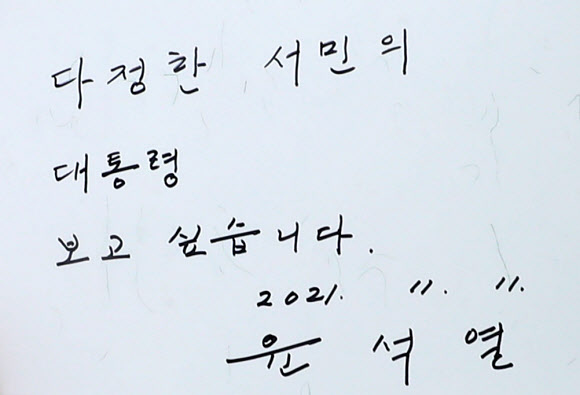 다정한 서민의
대통령
보고 싶습니다.
2021. 11. 11.
윤석열